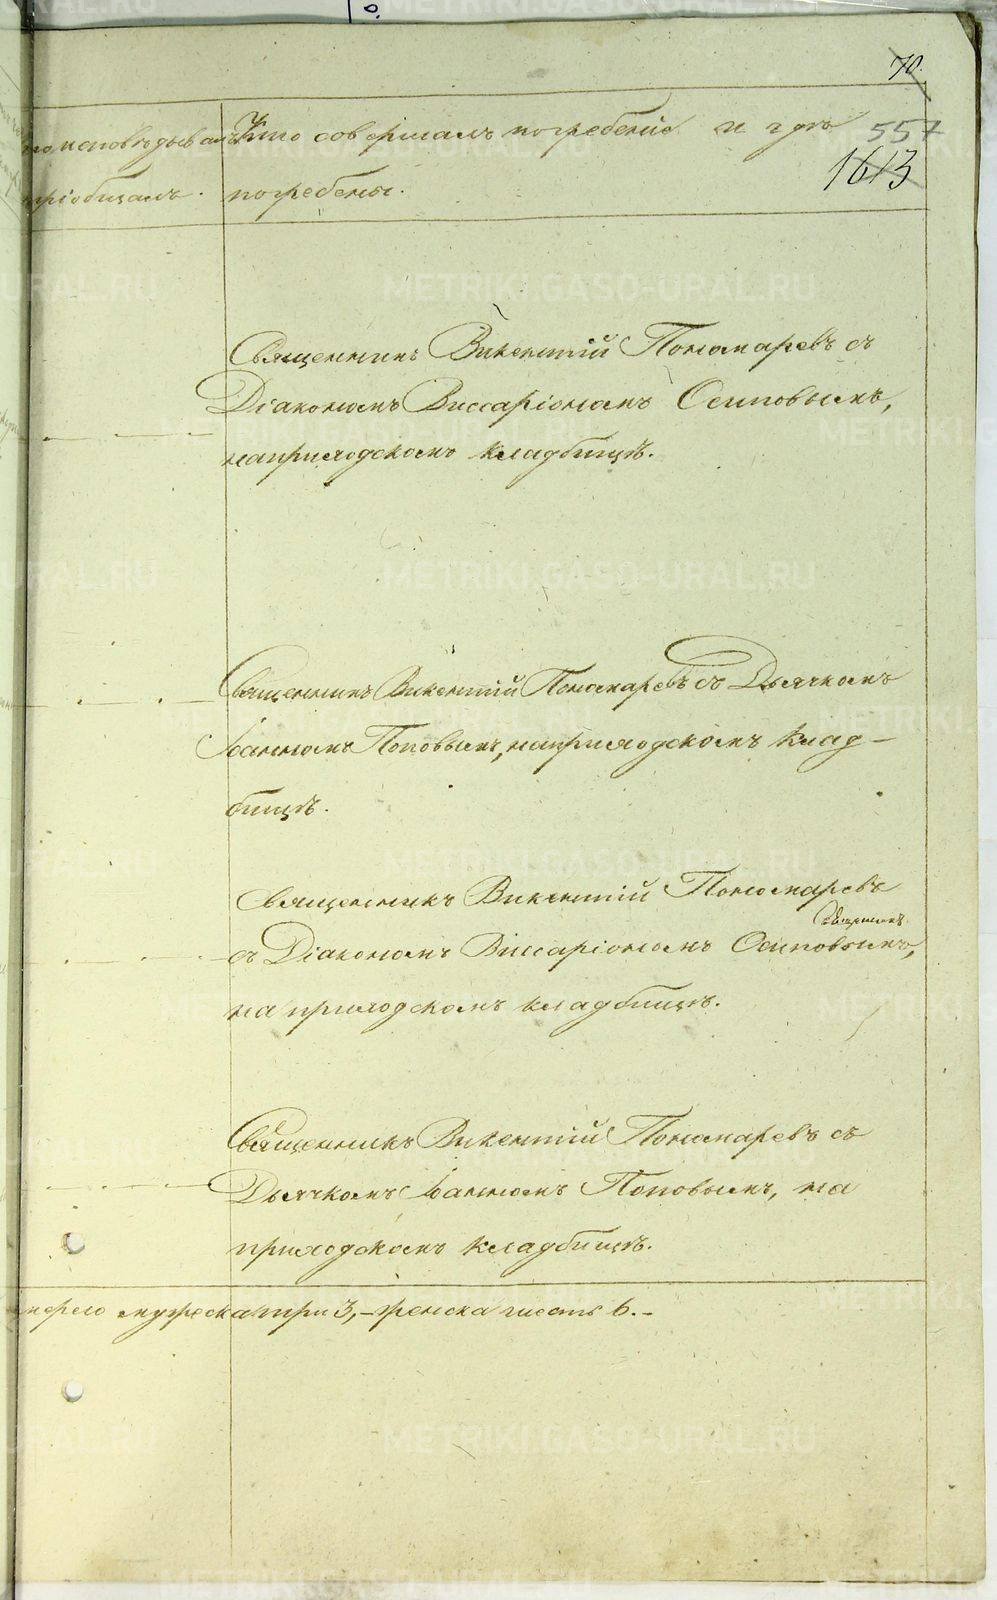 70.
557
1613
исповѣдывалъ
пріобщалъ.
Кто совершалъ погребеніе и гдѣ
погребены.
Священникъ Викентій Пономаревъ съ
Діакономъ Виссаріономъ Осиповымъ,
на приходскомъ кладбищѣ.
Священникъ Викентій Пономаревъ съ Дьячкомъ
Іоанномъ Поповымъ, на приходскомъ клад-
бищѣ.
Священникъ Викентій Пономаревъ
съ Діакономъ Виссаріономъ Осиповымъ,
на приходскомъ кладбищѣ.
Священникъ Викентій Пономаревъ съ
Дьячкомъ Іоанномъ Поповымъ, на
приходскомъ кладбищѣ.
мужеска три 3, - женска шесть 6. -
METRIKI.GASO-URAL.RU